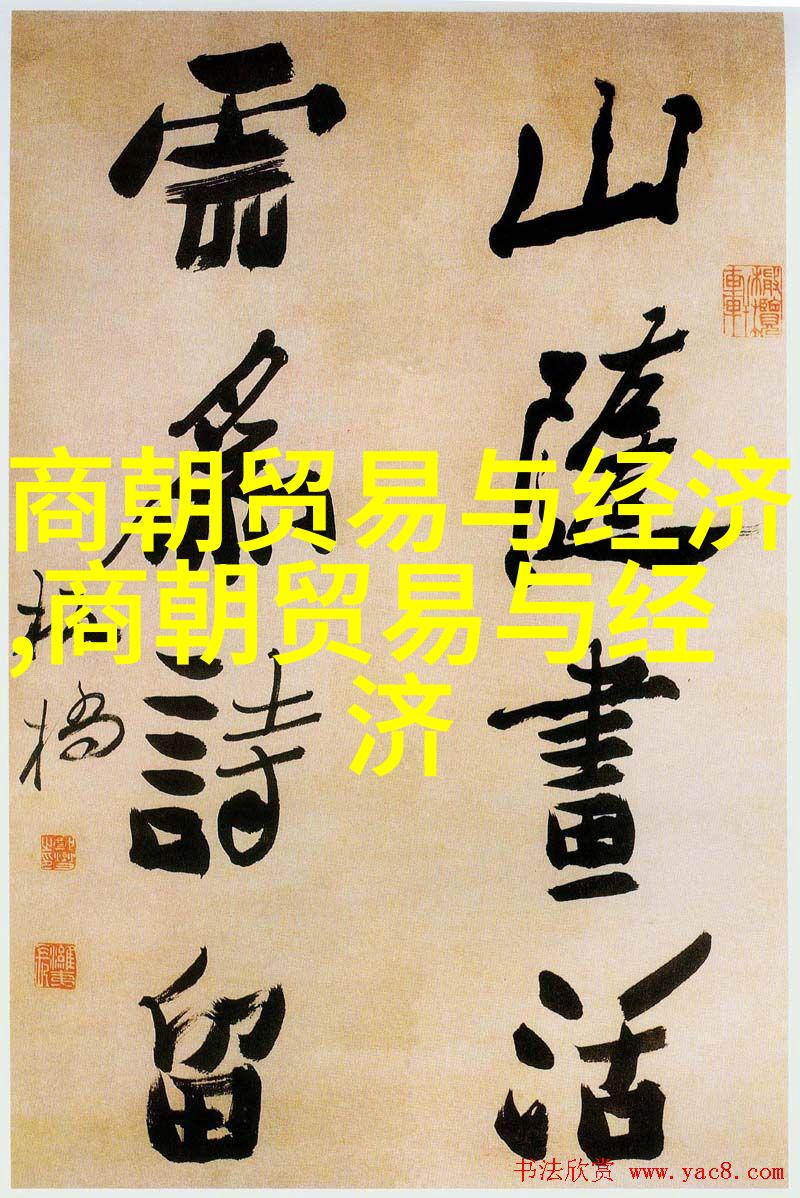 山隨畫活
雲為詩留
板橋
商朝贸易与经济
,商朝贸易与经
济
书法欣赏 www.yac8.com